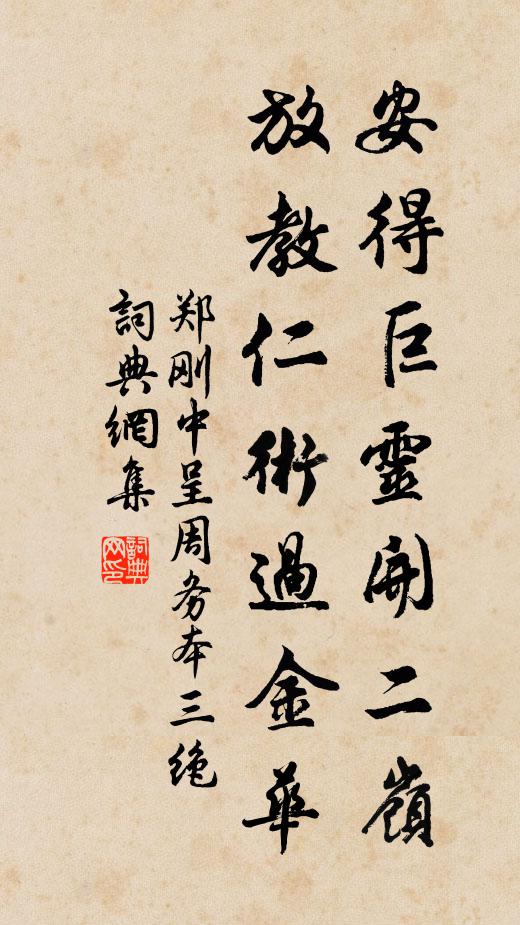 安得巨靈開二嶺
放教仁術過金華
郑刚中呈周务本三绝
詞典網集
詞典网印